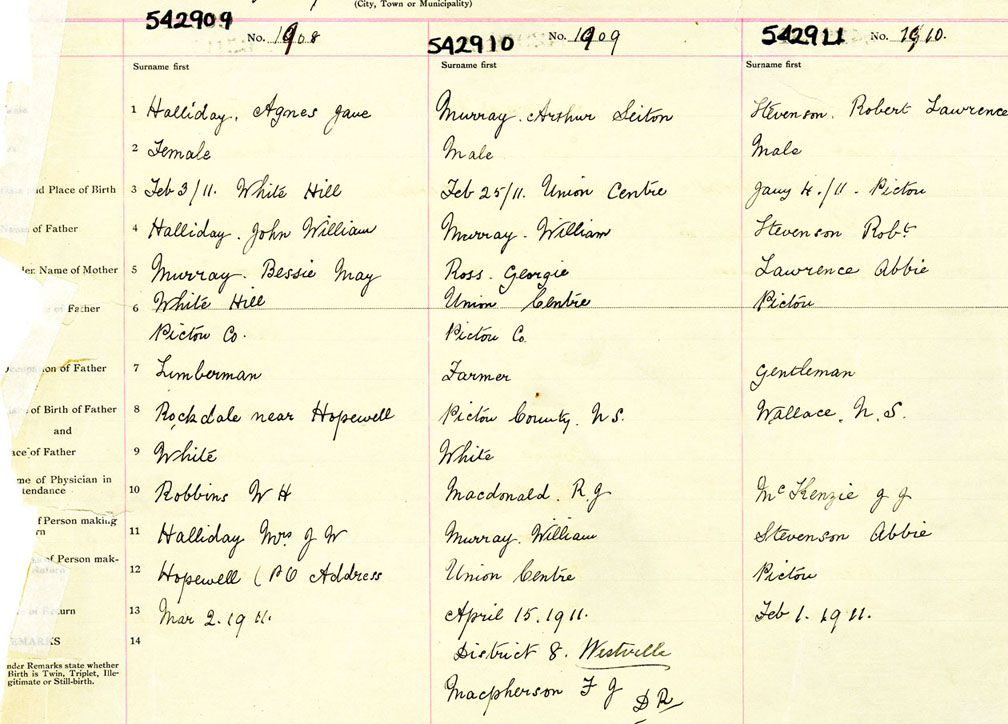 (City, Town or Municipality)
542909 No. 1908
542910 No. 1909
542911 No. 1910.
Surname first Surname first Surname first
1 Halliday, Agnes Jane Murray. Arthur Seiton Stevenson. Robert Lawrence
2 Female Male Male
and Place of Birth 3 Feb 3/11. White Hill Feb 25/11. Union Centre Jany 4./11 - Pictou
of Father 4 Halliday. John William Murray - William Stevenson Robt
Name of Mother 5 Murray. Bessie May Ross. Georgie Lawrence Abbie
of Father 6 White Hill Union Centre Pictou
Pictou Co. Pictou Co.
of Father 7 Lumberman Farmer Gentleman
of Birth of Father 8 Rockdale near Hopewell Pictou County. N S. Wallace. N. S.
and
of Father 9 White White
me of Physician in
tendance 10 Robbins W H Macdonald. R. J Mc Kenzie J J
f Person making
rn 11 Halliday Mrs J W Murray. William Stevenson Abbie
of Person mak-
12 Hopewell (PO Address Union Centre Pictou
13 Mar 2. 1911. April 15. 1911. Feb 1. 1911.
14 District 8. Westville
nder Remarks state whether
Birth is Twin, Triplet, Ille-
gitimate or Still-birth.
Macpherson F J DR